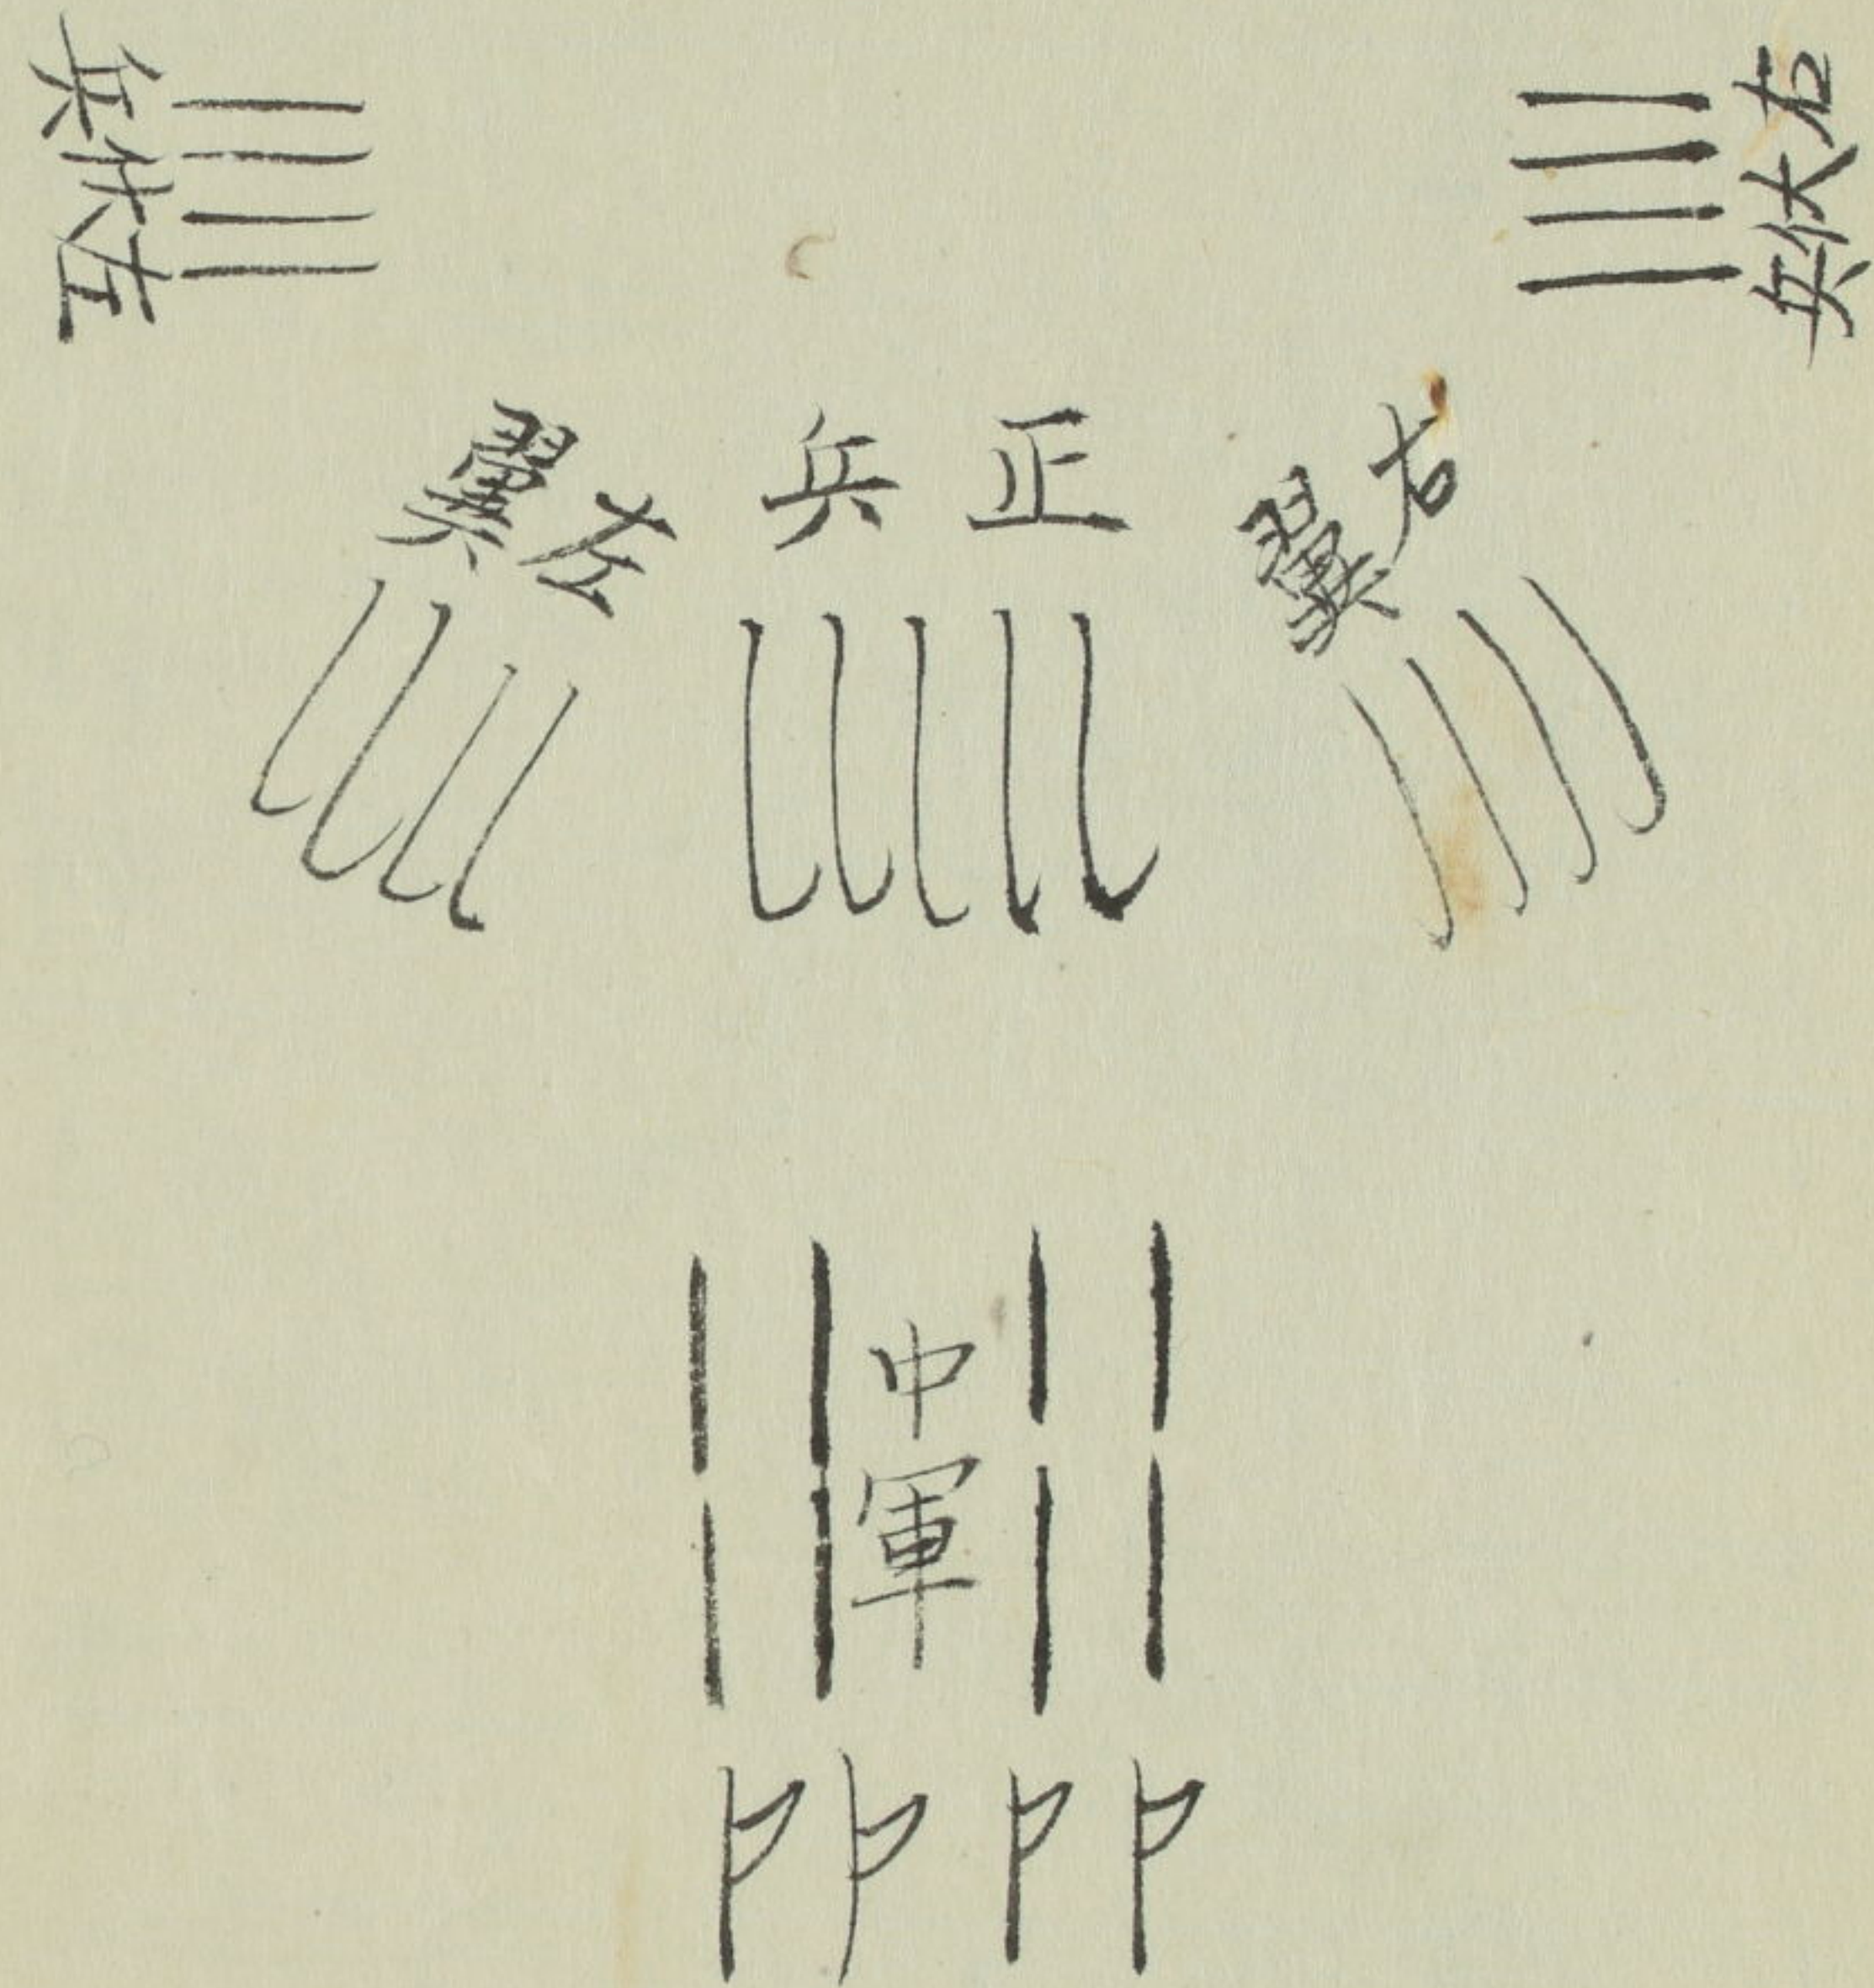 右伏兵
左伏兵
右翼
正兵
左翼
中軍